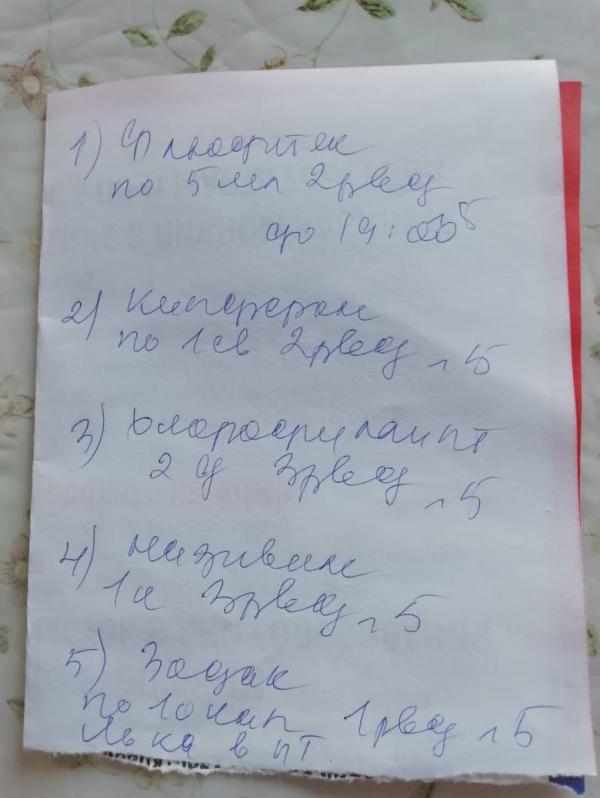 1) Флюдитек
по 5 мл 2р в д
до 19:00 5
2) Кипферон
по 1 св 2р в д 5
3) Хлорофиллипт
2 д 3р в д 5
4) Називин
1 к 3р в д 5
5) Зодак
по 10 кап 1р в д 5
Явка в пт.